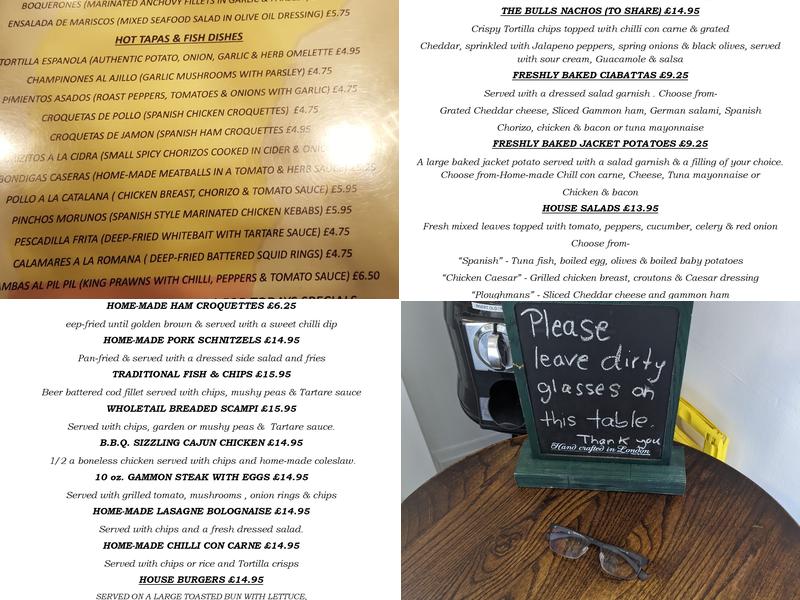 BOQUERONES (MARINATED ANCHOVY FILLETS IN GARLIC &
ENSALADA DE MARISCOS (MIXED SEAFOOD SALAD IN OLIVE OIL DRESSING) £5.75
HOT TAPAS & FISH DISHES
TORTILLA ESPANOLA (AUTHENTIC POTATO, ONION, GARLIC & HERB OMELETTE £4.95
CHAMPINONES AL AJILLO (GARLIC MUSHROOMS WITH PARSLEY) £4.75
PIMIENTOS ASADOS (ROAST PEPPERS, TOMATOES & ONIONS WITH GARLIC) £4.75
CROQUETAS DE POLLO (SPANISH CHICKEN CROQUETTES) £4.75
CROQUETAS DE JAMON (SPANISH HAM CROQUETTES £4.95
A LA CIDRA (SMALL SPICY CHORIZOS COOKED IN CIDER &
CASERAS (HOME-MADE MEATBALLS IN A TOMATO & HERB
POLLO A LA CATALANA ( CHICKEN BREAST, CHORIZO & TOMATO SAUCE) £5.95
PINCHOS MORUNOS (SPANISH STYLE MARINATED CHICKEN KEBABS) £5.95
PESCADILLA FRITA (DEEP-FRIED WHITEBAIT WITH TARTARE SAUCE) £4.75
CALAMARES A LA ROMANA ( DEEP-FRIED BATTERED SQUID RINGS) £4.75
AMBAS AL PIL PIL (KING PRAWNS WITH CHILLI, PEPPERS & TOMATO SAUCE) £6.50
THE BULLS NACHOS (TO SHARE) £14.95
Crispy Tortilla chips topped with chilli con carne & grated
Cheddar, sprinkled with Jalapeno peppers, spring onions & black olives, served
with sour cream, Guacamole & salsa
FRESHLY BAKED CIABATTAS £9.25
Served with a dressed salad garnish . Choose from-
Grated Cheddar cheese, Sliced Gammon ham, German salami, Spanish
Chorizo, chicken & bacon or tuna mayonnaise
FRESHLY BAKED JACKET POTATOES £9.25
A large baked jacket potato served with a salad garnish & a filling of your choice.
Choose from-Home-made Chill con carne, Cheese, Tuna mayonnaise or
Chicken & bacon
HOUSE SALADS £13.95
Fresh mixed leaves topped with tomato, peppers, cucumber, celery & red onion
Choose from-
“Spanish” - Tuna fish, boiled egg, olives & boiled baby potatoes
“Chicken Caesar” - Grilled chicken breast, croutons & Caesar dressing
“Ploughmans” - Sliced Cheddar cheese and gammon ham
HOME-MADE HAM CROQUETTES £6.25
eep-fried until golden brown & served with a sweet chilli dip
HOME-MADE PORK SCHNITZELS £14.95
Pan-fried & served with a dressed side salad and fries
TRADITIONAL FISH & CHIPS £15.95
Beer battered cod fillet served with chips, mushy peas & Tartare sauce
WHOLETAIL BREADED SCAMPI £15.95
Served with chips, garden or mushy peas & Tartare sauce.
B.B.Q. SIZZLING CAJUN CHICKEN £14.95
1/2 a boneless chicken served with chips and home-made coleslaw.
10 oz. GAMMON STEAK WITH EGGS £14.95
Served with grilled tomato, mushrooms , onion rings & chips
HOME-MADE LASAGNE BOLOGNAISE £14.95
Served with chips and a fresh dressed salad.
HOME-MADE CHILLI CON CARNE £14.95
Served with chips or rice and Tortilla crisps
HOUSE BURGERS £14.95
SERVED ON A LARGE TOASTED BUN WITH LETTUCE,
Please
leave dirty
glasses on
this table.
Thank you
Hand crafted in London